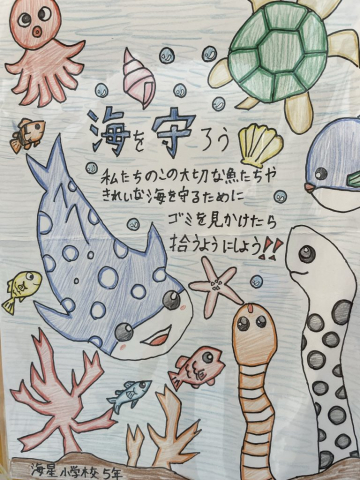 海を守ろう
私たちのこの大切な魚たちや
きれいな海を守るために
ゴミを見かけたら
拾うようにしよう!!
海星小学校5年